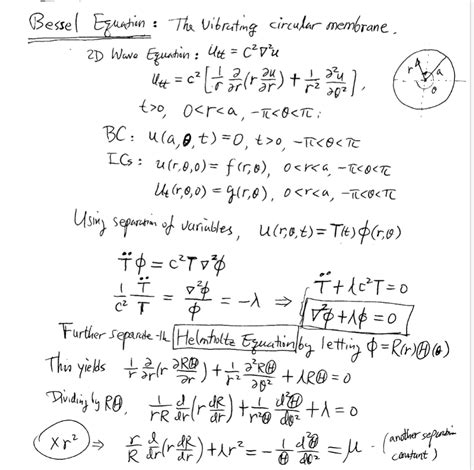 Bessel Equation: The Vibrating circular membrane.
2D Wave Equation: u_tt = c²∇²u
u_tt = c² [ 1/r ∂/∂r (r ∂u/∂r) + 1/r² ∂²u/∂θ² ]
r a θ
t>0, 0<r<a, -π<θ<π;
BC: u(a,θ,t) = 0, t>0, -π<θ<π
ICs: u(r,θ,0) = f(r,θ), 0<r<a, -π<θ<π
u_t(r,θ,0) = g(r,θ), 0<r<a, -π<θ<π
Using separation of variables, u(r,θ,t) = T(t)ϕ(r,θ)
T̈ϕ = c²T∇²ϕ
1/c² T̈/T = ∇²ϕ/ϕ = -λ ⇒ T̈ + λc²T = 0
∇²ϕ + λϕ = 0
Further separate the Helmholtz Equation by letting ϕ = R(r)Θ(θ)
This yields 1/r ∂/∂r (r ∂RΘ/∂r) + 1/r² ∂²RΘ/∂θ² + λRΘ = 0
Dividing by RΘ, 1/rR d/dr (r dR/dr) + 1/r²Θ d²Θ/dθ² + λ = 0
×r² ⇒ r/R d/dr (r dR/dr) + λr² = -1/Θ d²Θ/dθ² = μ - (another separation constant)